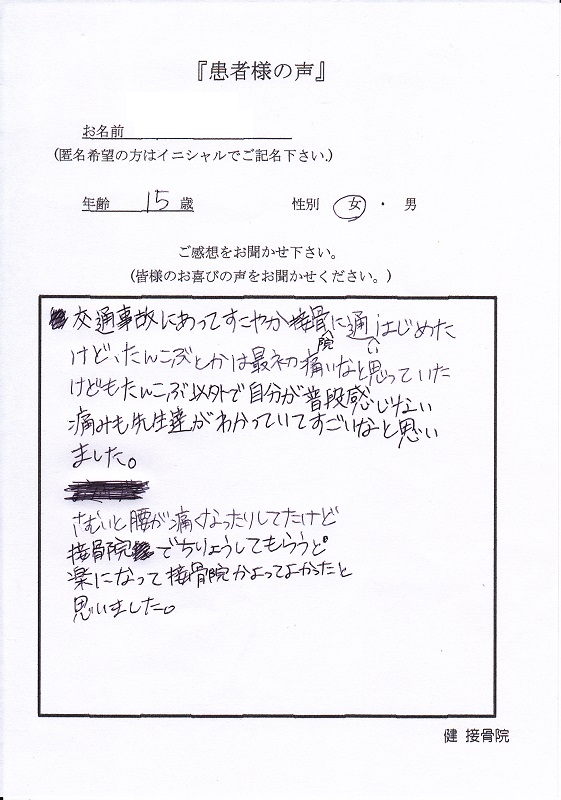 『患者様の声』
お名前
(匿名希望の方はイニシャルでご記名下さい.)
年齢 15 歳 性別 女 ・ 男
ご感想をお聞かせ下さい。
(皆様のお喜びの声をお聞かせください。)
交通事故にあってすこやか接骨院に通いはじめた
けど、たんこぶとかは最初痛いなと思っていた
けどもたんこぶ以外で自分が普段感じない
痛みも先生達がわかっていてすごいなと思い
ました。
さむいと腰が痛くなったりしてたけど
接骨院でちりょうしてもらうと
楽になって接骨院かよってよかったと
思いました。
健 接骨院